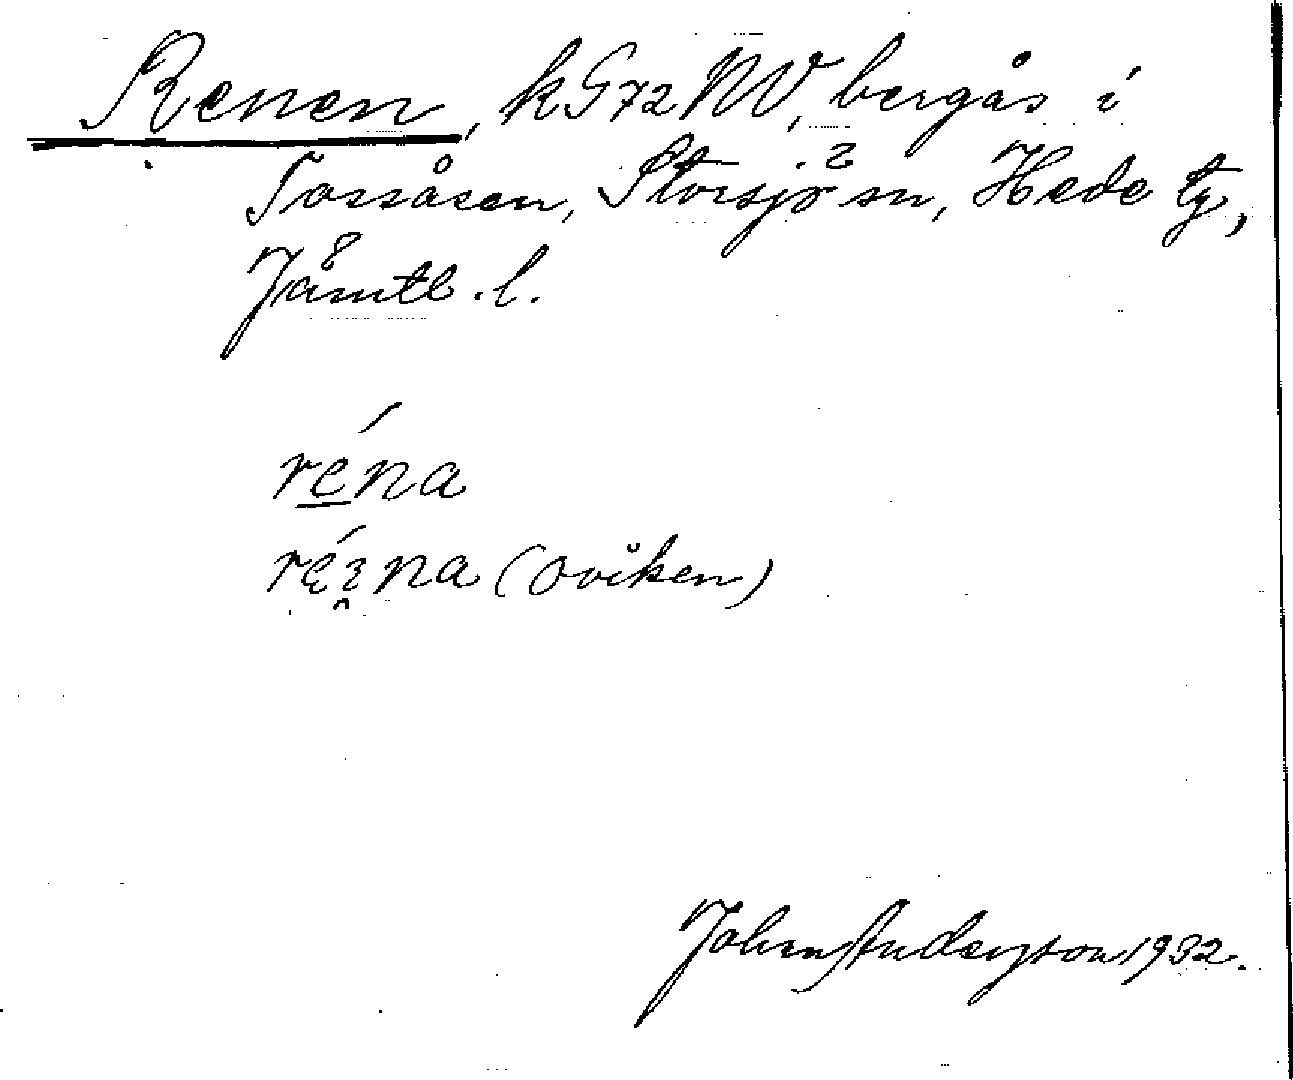 Renen, kG72NV, bergås i
Tossåsen, Storsjö sn, Hede tg,
Jämtl. l.
réna
réina (Oviken)
John Andersson 1932.